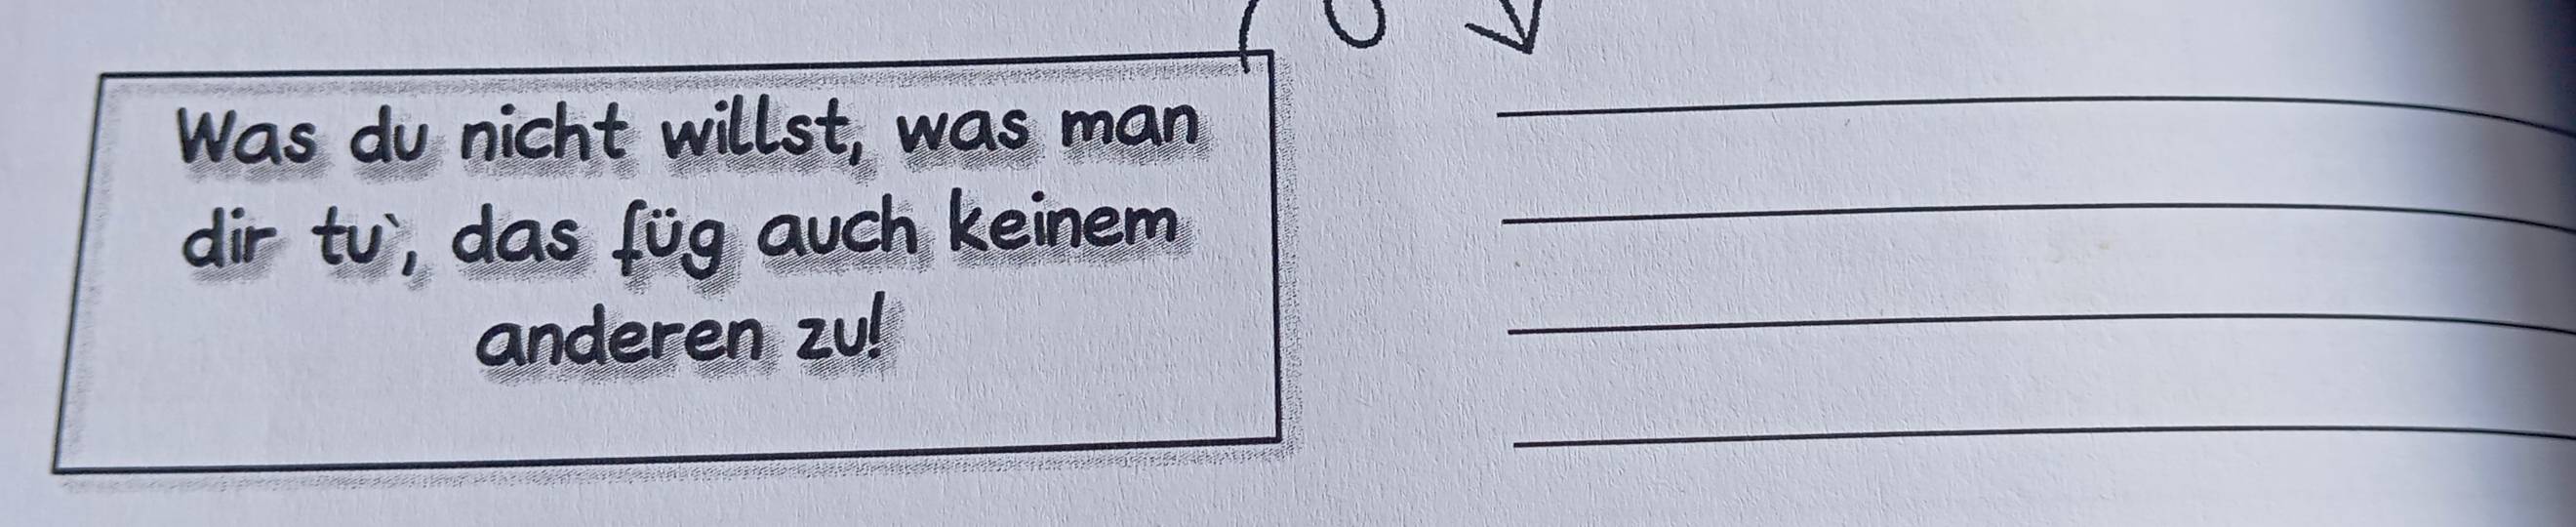 Was du nicht willst, was man
dir tu`, das füg auch keinem
anderen zu!